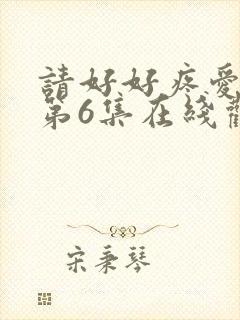 請好好疼愛
第6集在綫
宋秉琴